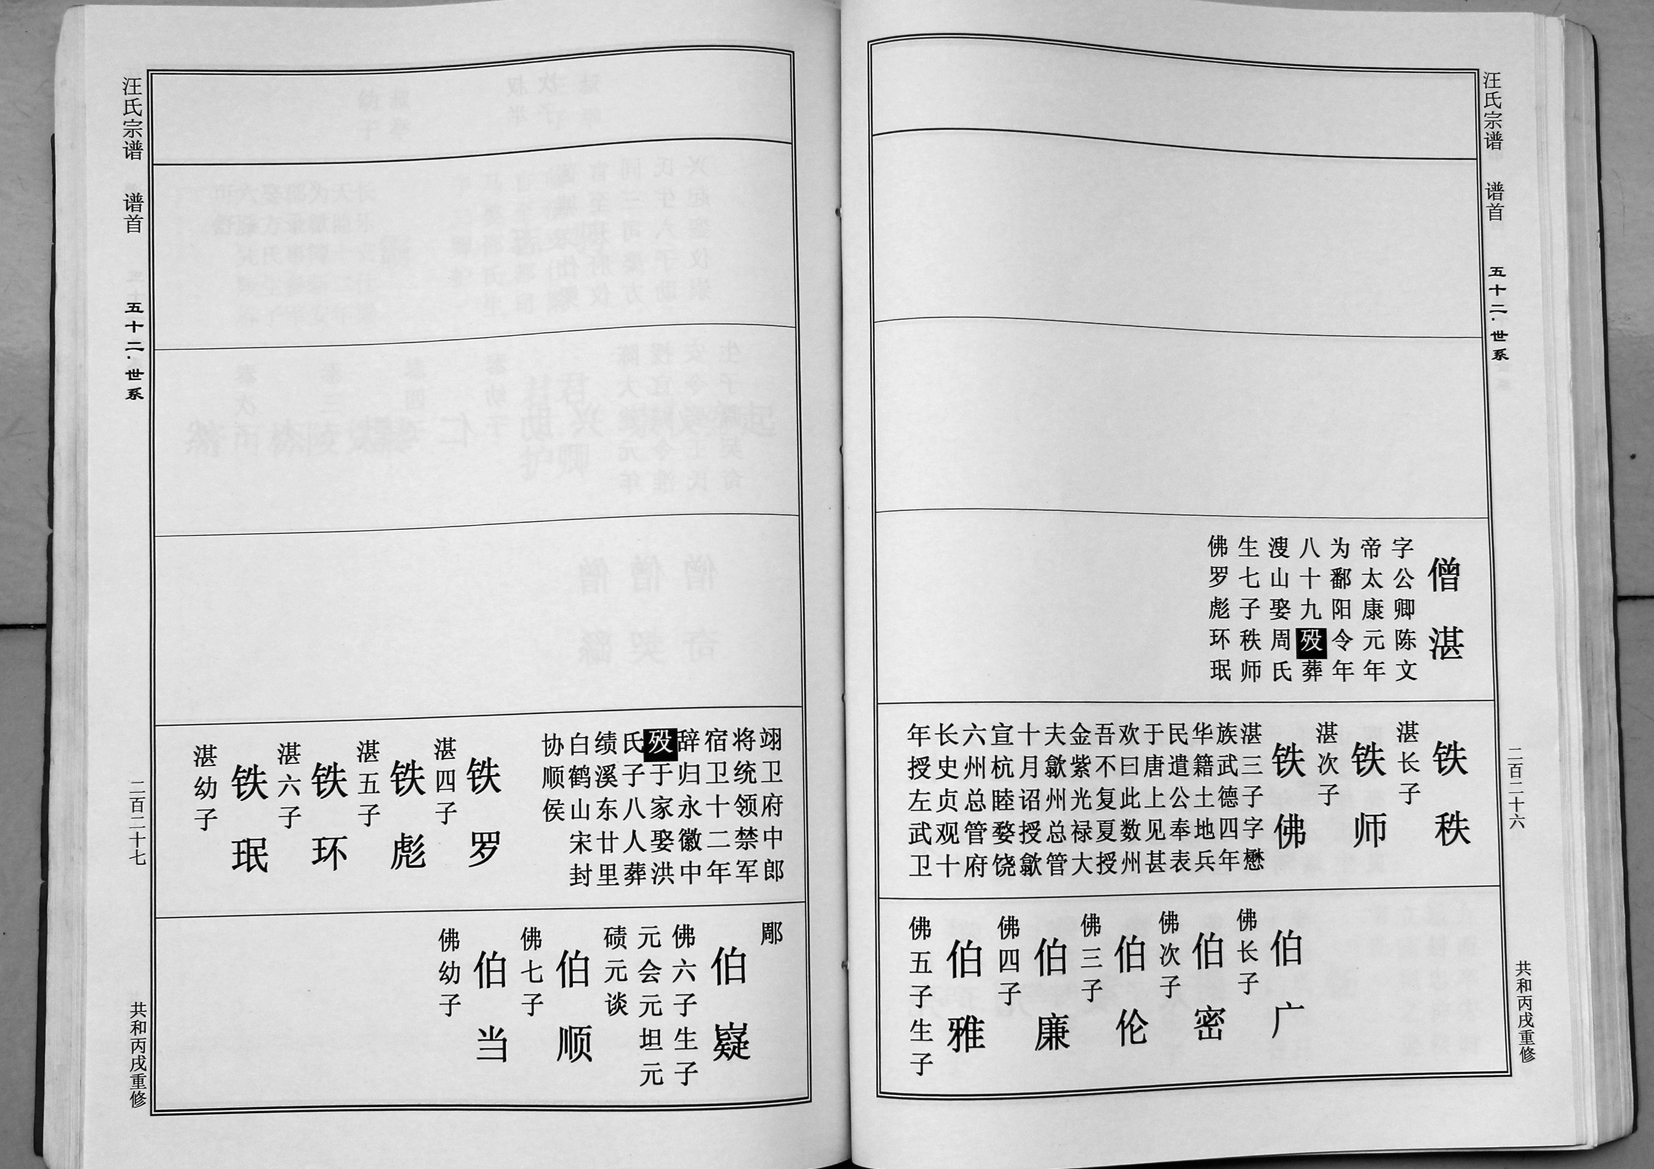 汪氏宗谱 谱首 五十二·世系 二百二十六 共和丙戌重修
僧湛
字公卿陈文
帝太康元年
为鄱阳令年
八十九殁葬
溲山娶周氏
生七子秩师
佛罗彪环珉
铁秩
湛长子
铁师
湛次子
铁佛
湛三子字懋
族武德四年
华籍土地兵
民遣公奉表
于唐上见甚
欢曰此数州
吾不复夏授
金紫光禄大
夫歙州总管
十月诏授歙
宣杭睦婺饶
六州总管府
长史贞观十
年授左武卫
伯广
佛长子
伯密
佛次子
伯伦
佛三子
伯廉
佛四子
伯雅
佛五子生子
翊卫府中郎
将统领禁军
宿卫十二年
辞归永徽中
殁于家娶洪
氏子八人葬
绩溪东廿里
白鹤山宋封
协顺侯
铁罗
湛四子
铁彪
湛五子
铁环
湛六子
铁珉
湛幼子
伯嶷
佛六子生子
元会元坦元
碛元谈
伯顺
佛七子
伯当
佛幼子
汪氏宗谱 谱首 五十二·世系 二百二十七 共和丙戌重修